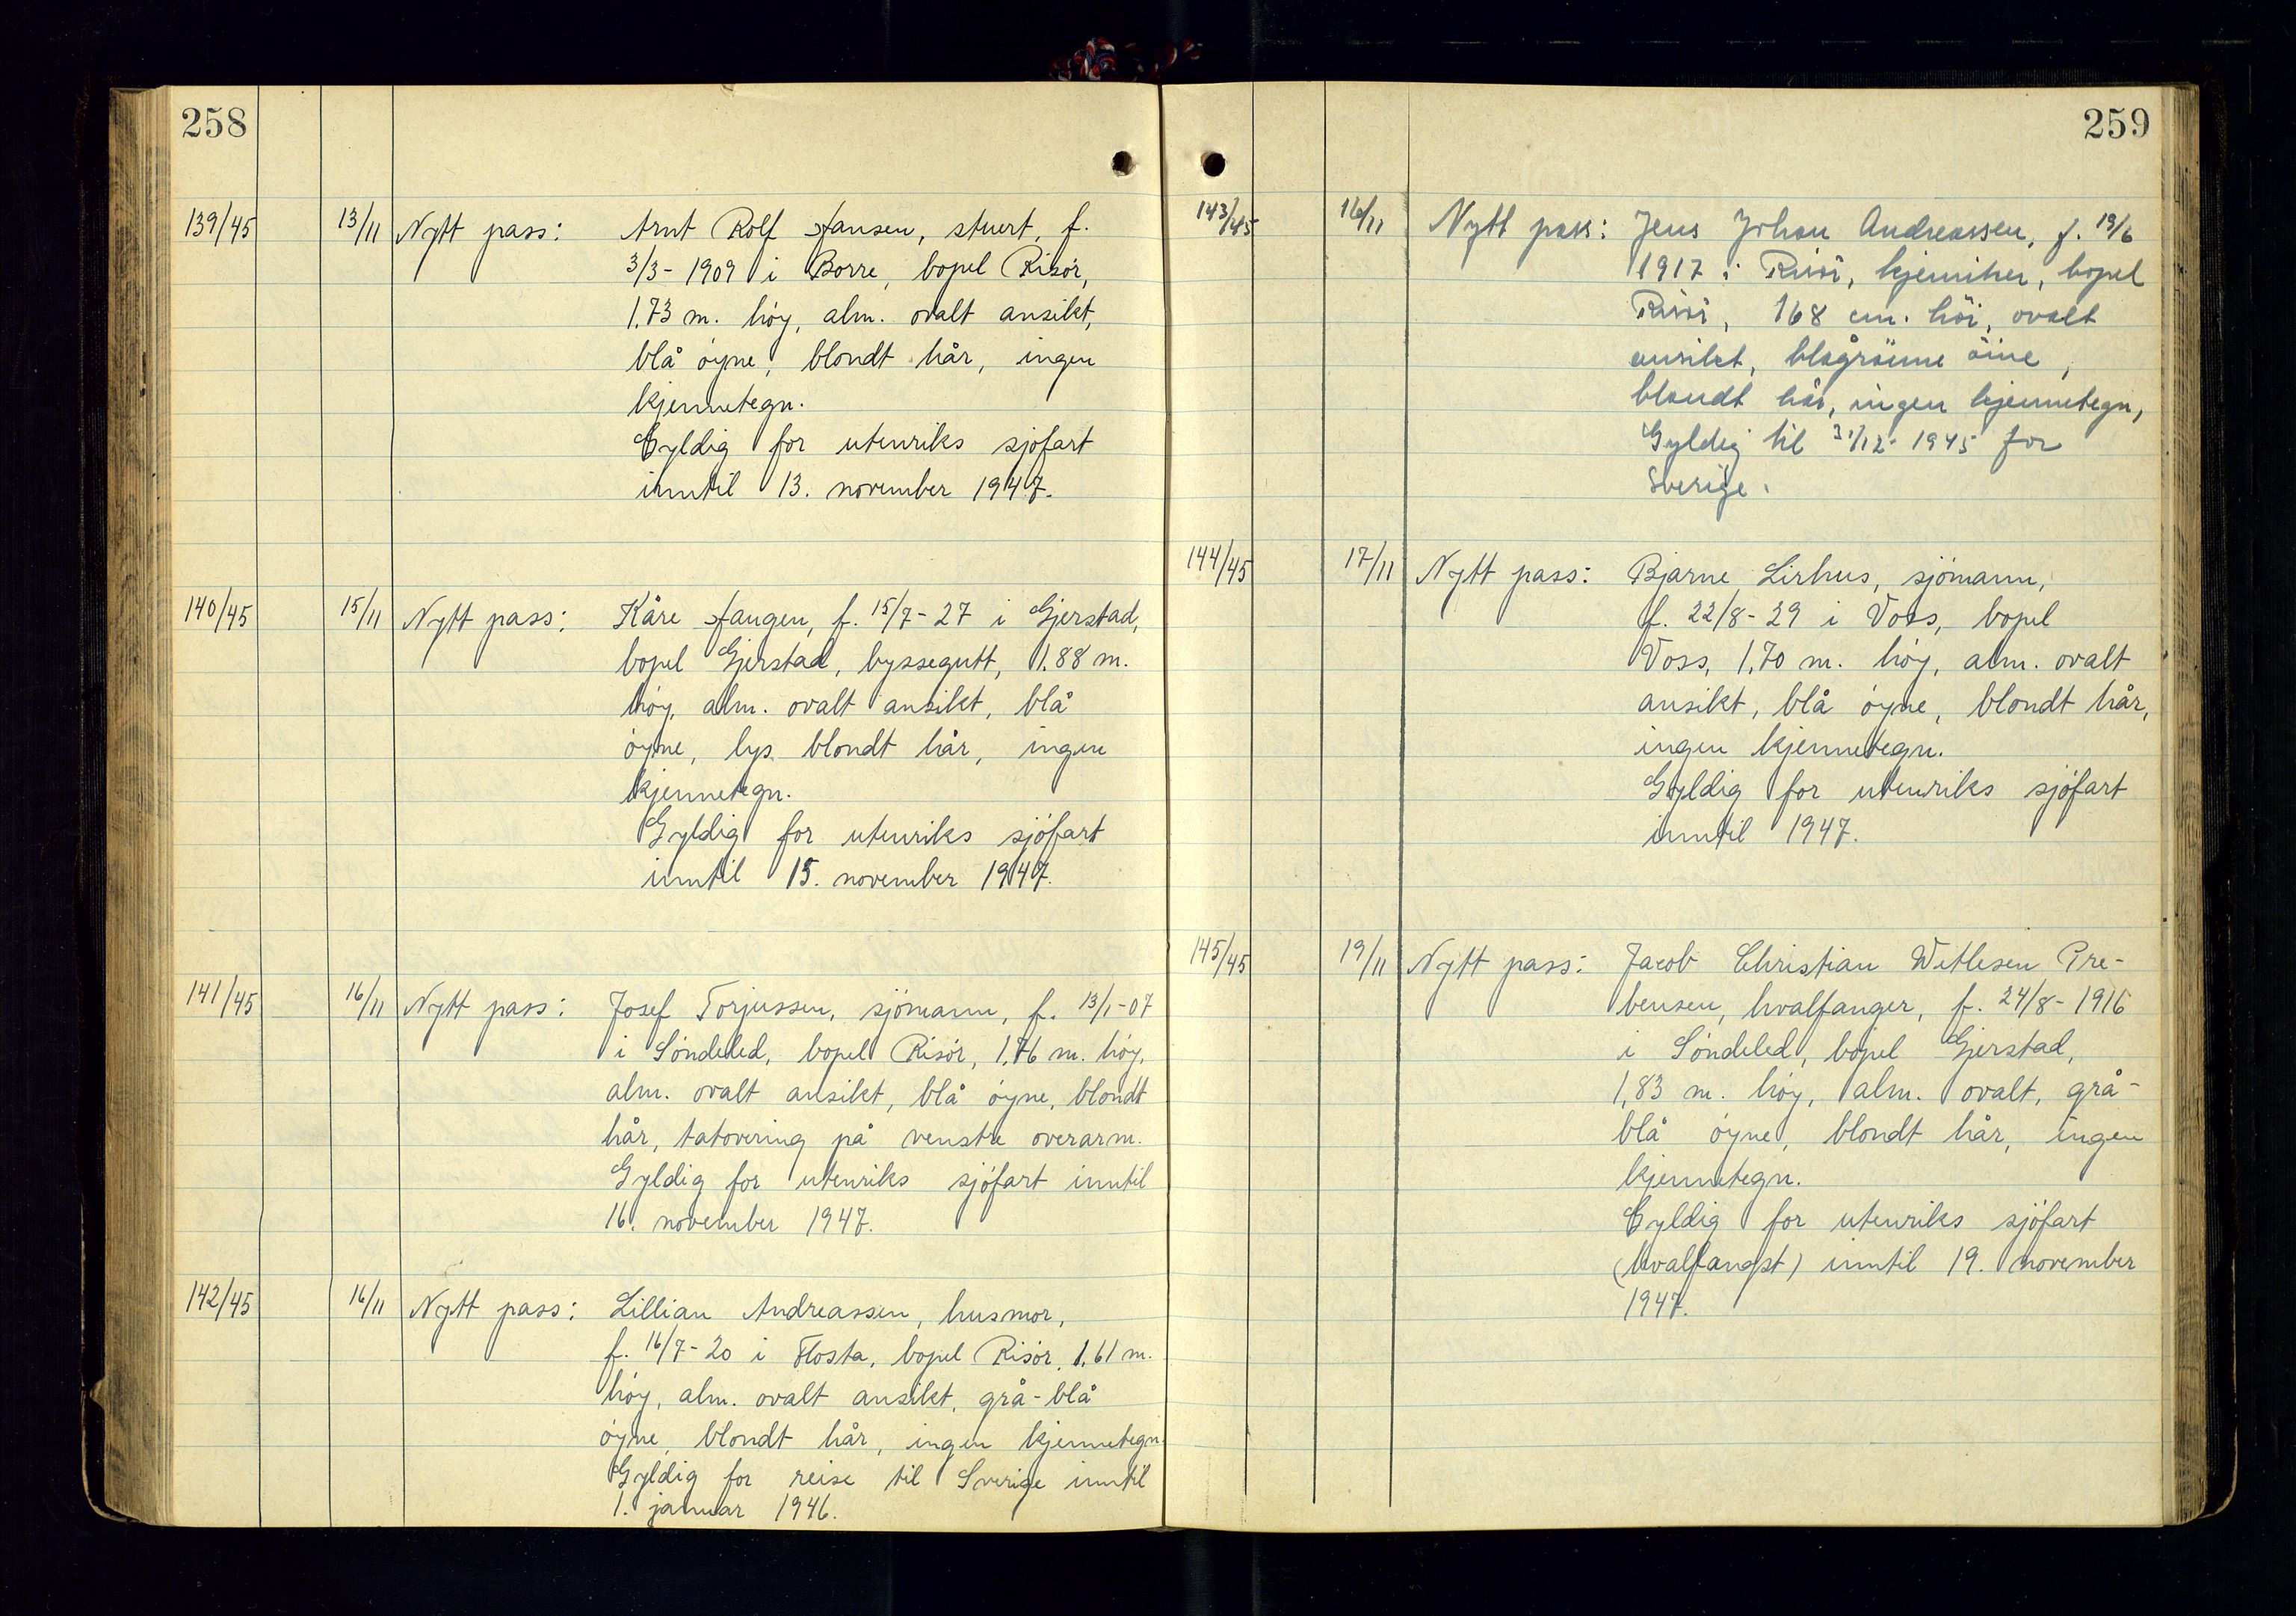 258
139/45 13/11 Nytt pass: Arnt Rolf Jansen, stuert, f.
3/3-1909 i Borre, bopel Risör,
1.73 m. höy, alm. ovalt ansikt,
blå öyne, blondt hår, ingen
kjennetegn.
Gyldig for utenriks sjöfart
inntil 13. november 1947.
140/45 15/11 Nytt pass: Kåre Jangen, f. 15/7-27 i Gjerstad,
bopel Gjerstad, byssegutt, 1.88 m.
höy, alm. ovalt ansikt, blå
öyne, lys blondt hår, ingen
kjennetegn.
Gyldig for utenriks sjöfart
inntil 15. november 1947.
141/45 16/11 Nytt pass: Josef Torjussen, sjömann, f. 13/1-07
i Söndeled, bopel Risör, 1,76 m. höy,
alm. ovalt ansikt, blå öyne, blondt
hår, tatovering på venstre overarm.
Gyldig for utenriks sjöfart inntil
16. november 1947.
142/45 16/11 Nytt pass: Lillian Andreassen, husmor,
f. 16/7-20 i Flosta, bopel Risör, 1.61 m.
höy, alm. ovalt ansikt, grå-blå
öyne, blondt hår, ingen kjennetegn.
Gyldig for reise til Sverige inntil
1. januar 1946.
259
143/45 16/11 Nytt pass: Jens Johan Andreassen, f. 19/6
1917 i Risör, kjemiker, bopel
Risör, 168 cm. höi, ovalt
ansikt, blågrönne öine,
blondt hår, ingen kjennetegn,
Gyldig til 31/12-1945 for
Sverige.
144/45 17/11 Nytt pass: Bjarne Lirhus, sjömann,
f. 22/8-29 i Voss, bopel
Voss, 1,70 m. höy, alm. ovalt
ansikt, blå öyne, blondt hår,
ingen kjennetegn.
Gyldig for utenriks sjöfart
inntil 1947.
145/45 19/11 Nytt pass: Jacob Christian Wetlesen Pre-
bensen, hvalfanger, f. 24/8-1916
i Söndeled, bopel Gjerstad,
1,83 m. höy, alm. ovalt, grå-
blå öyne, blondt hår, ingen
kjennetegn.
Gyldig for utenriks sjöfart
(hvalfangst) inntil 19. november
1947.